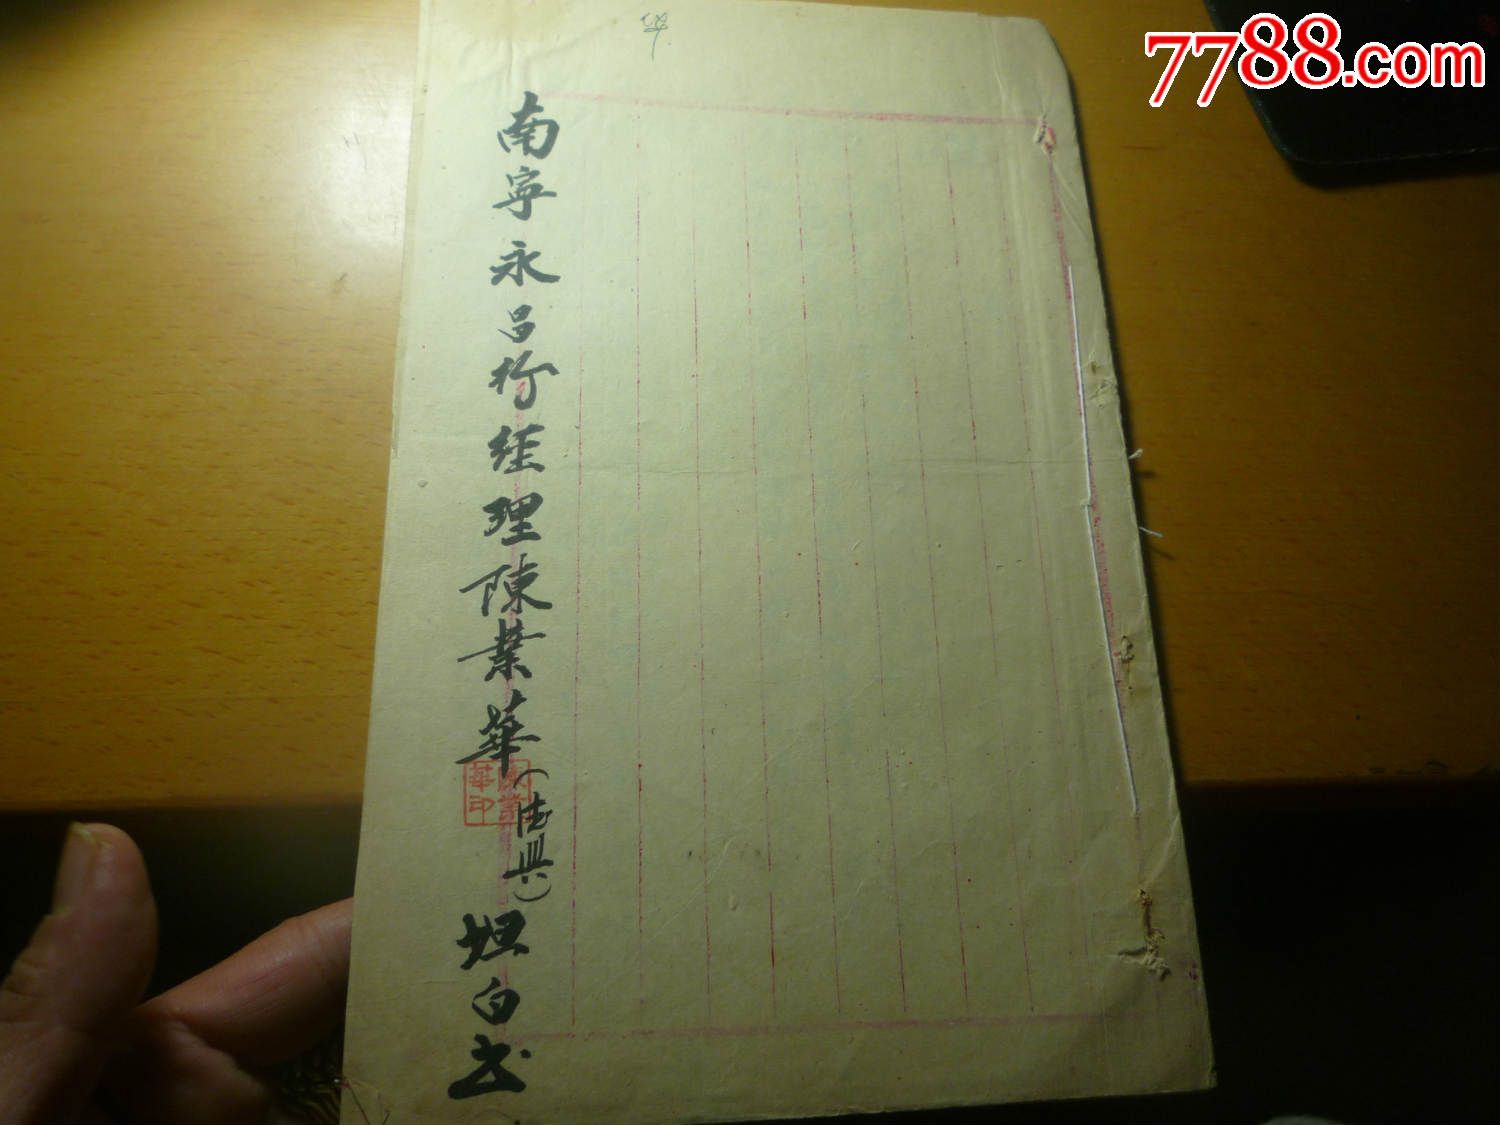 7788.com
南寧永昌行經理陳業華（德興）坦白书
陳業華印